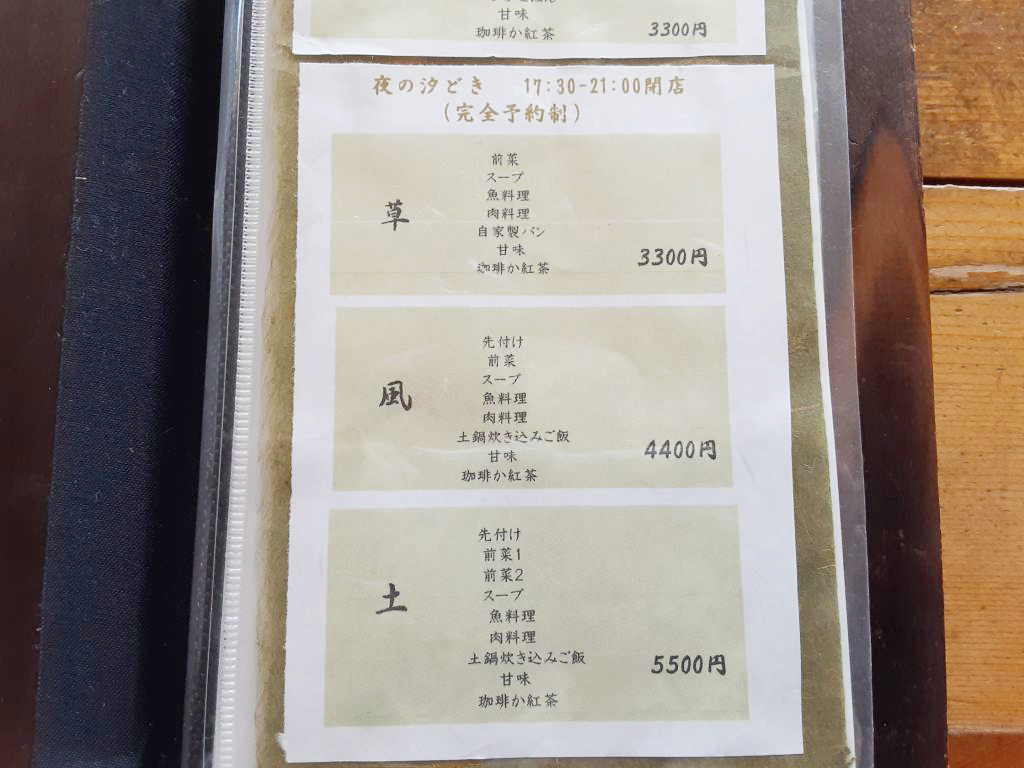 甘味
珈琲か紅茶
3300円
夜の汐どき 17:30-21:00閉店
(完全予約制)
草
前菜
スープ
魚料理
肉料理
自家製パン
甘味
珈琲か紅茶
3300円
風
先付け
前菜
スープ
魚料理
肉料理
土鍋炊き込みご飯
甘味
珈琲か紅茶
4400円
土
先付け
前菜1
前菜2
スープ
魚料理
肉料理
土鍋炊き込みご飯
甘味
珈琲か紅茶
5500円